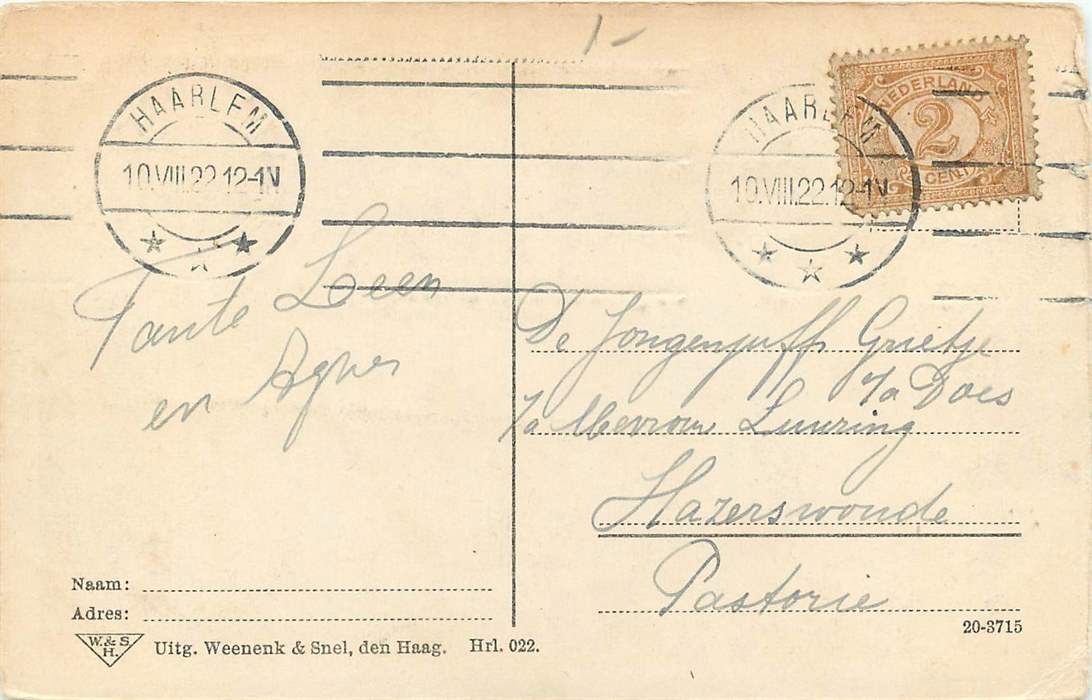 1-
HAARLEM
10.VIII.22.12-1N
HAARLEM
10.VIII.22.12-1N
NEDERLAND
2
CENT
Tante Leen
en Agnes
De Jongenjuff Grietje
v/a Does
p/a Mevrouw Luuring
Hazerswoude
Pastorie
Naam:
Adres:
W. & S.
H.
Uitg. Weenenk & Snel, den Haag. Hrl. 022.
20-3715